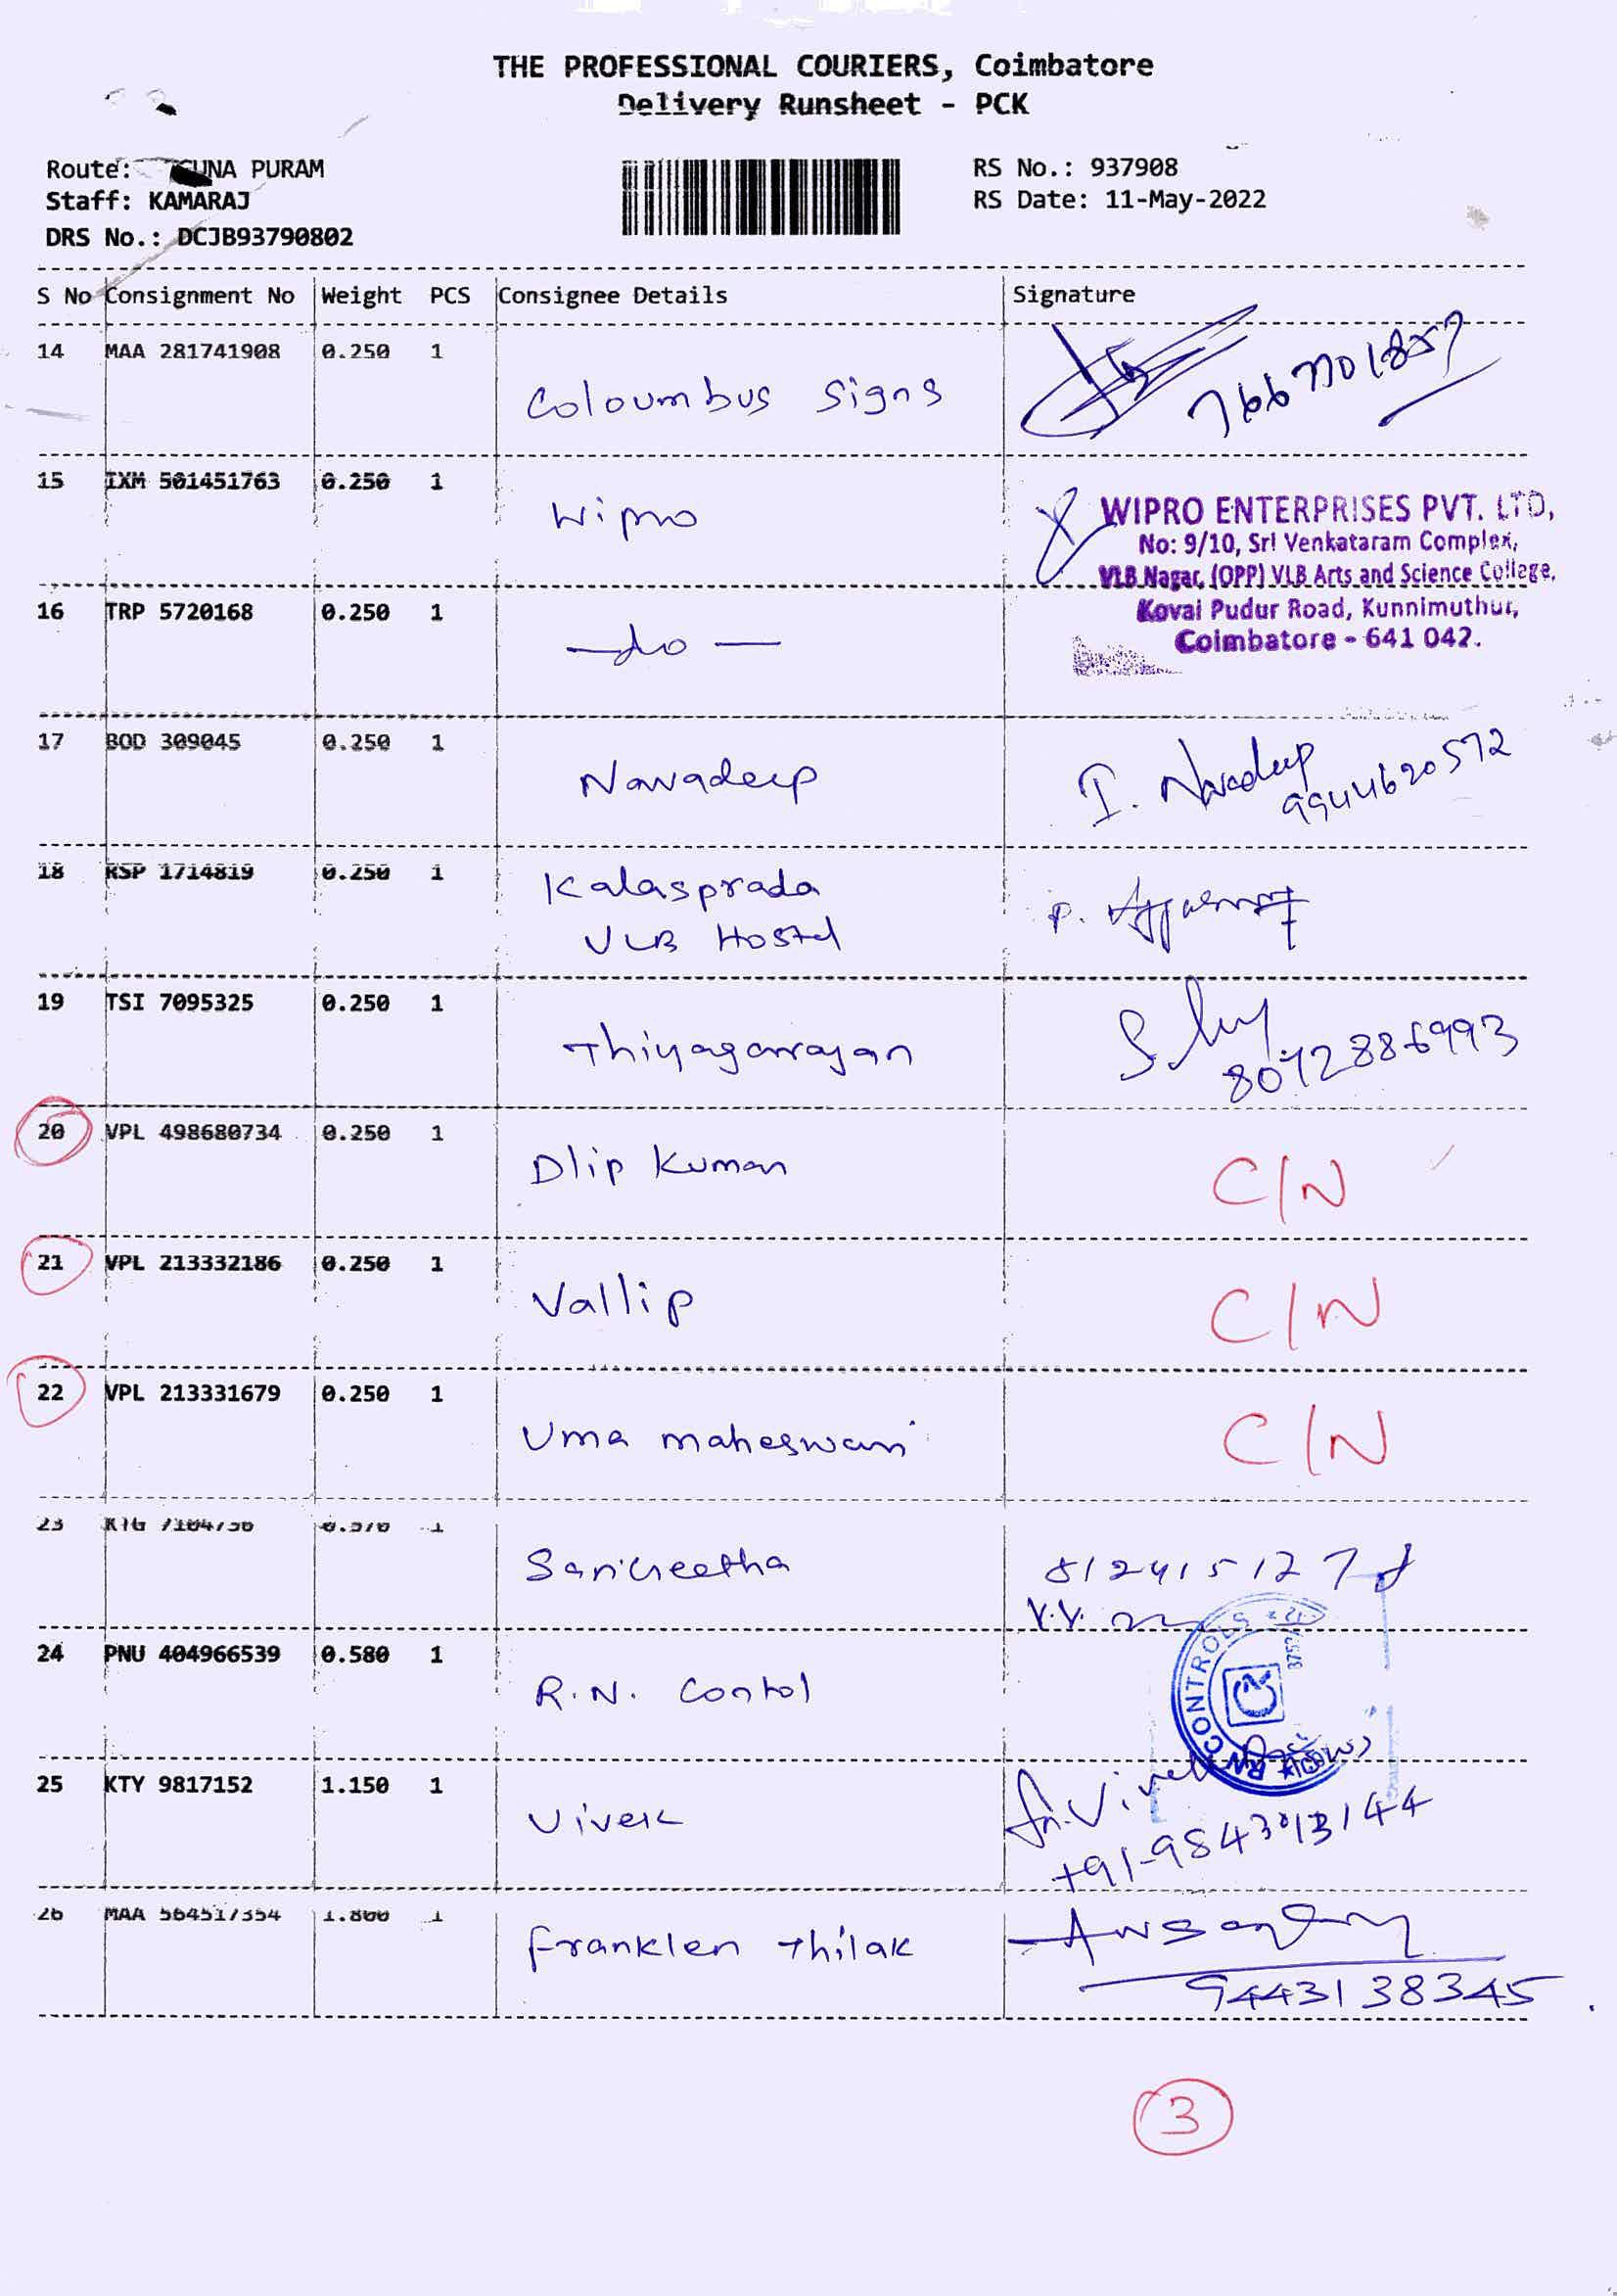 THE PROFESSIONAL COURIERS, Coimbatore
Delivery Runsheet - PCK
Route: GUNA PURAM
RS No.: 937908
Staff: KAMARAJ
RS Date: 11-May-2022
DRS No.: DCJB93790802
S No Consignment No Weight PCS Consignee Details Signature
14 MAA 281741908 0.250 1
Coloumbus Signs
15 IXM 501451763 0.250 1
Wipro
WIPRO ENTERPRISES PVT. LTD,
No: 9/10, Sri Venkataram Complex,
VLB Nagar, (OPP) VLB Arts and Science College,
Kovai Pudur Road, Kunnimuthur,
Coimbatore - 641 042.
16 TRP 5720168 0.250 1
—do—
17 BOD 309045 0.250 1
Navadeep
I. Navadeep
9944620572
18 RSP 1714819 0.250 1
Kalasprada
VLB Hostel
19 TSI 7095325 0.250 1
Thiyagarajan
8072886993
20 VPL 498680734 0.250 1
Dlip Kumar
C/N
21 VPL 213332186 0.250 1
Vallip
C/N
22 VPL 213331679 0.250 1
Uma maheswari
C/N
23 KTG 7104736 0.570 1
8124151278
24 PNU 404966539 0.580 1
R.N. Contol
RN CONTROLS
25 KTY 9817152 1.150 1
Vivek
26 MAA 564517354 1.800 1
Franklen Thilak
9443138345
3